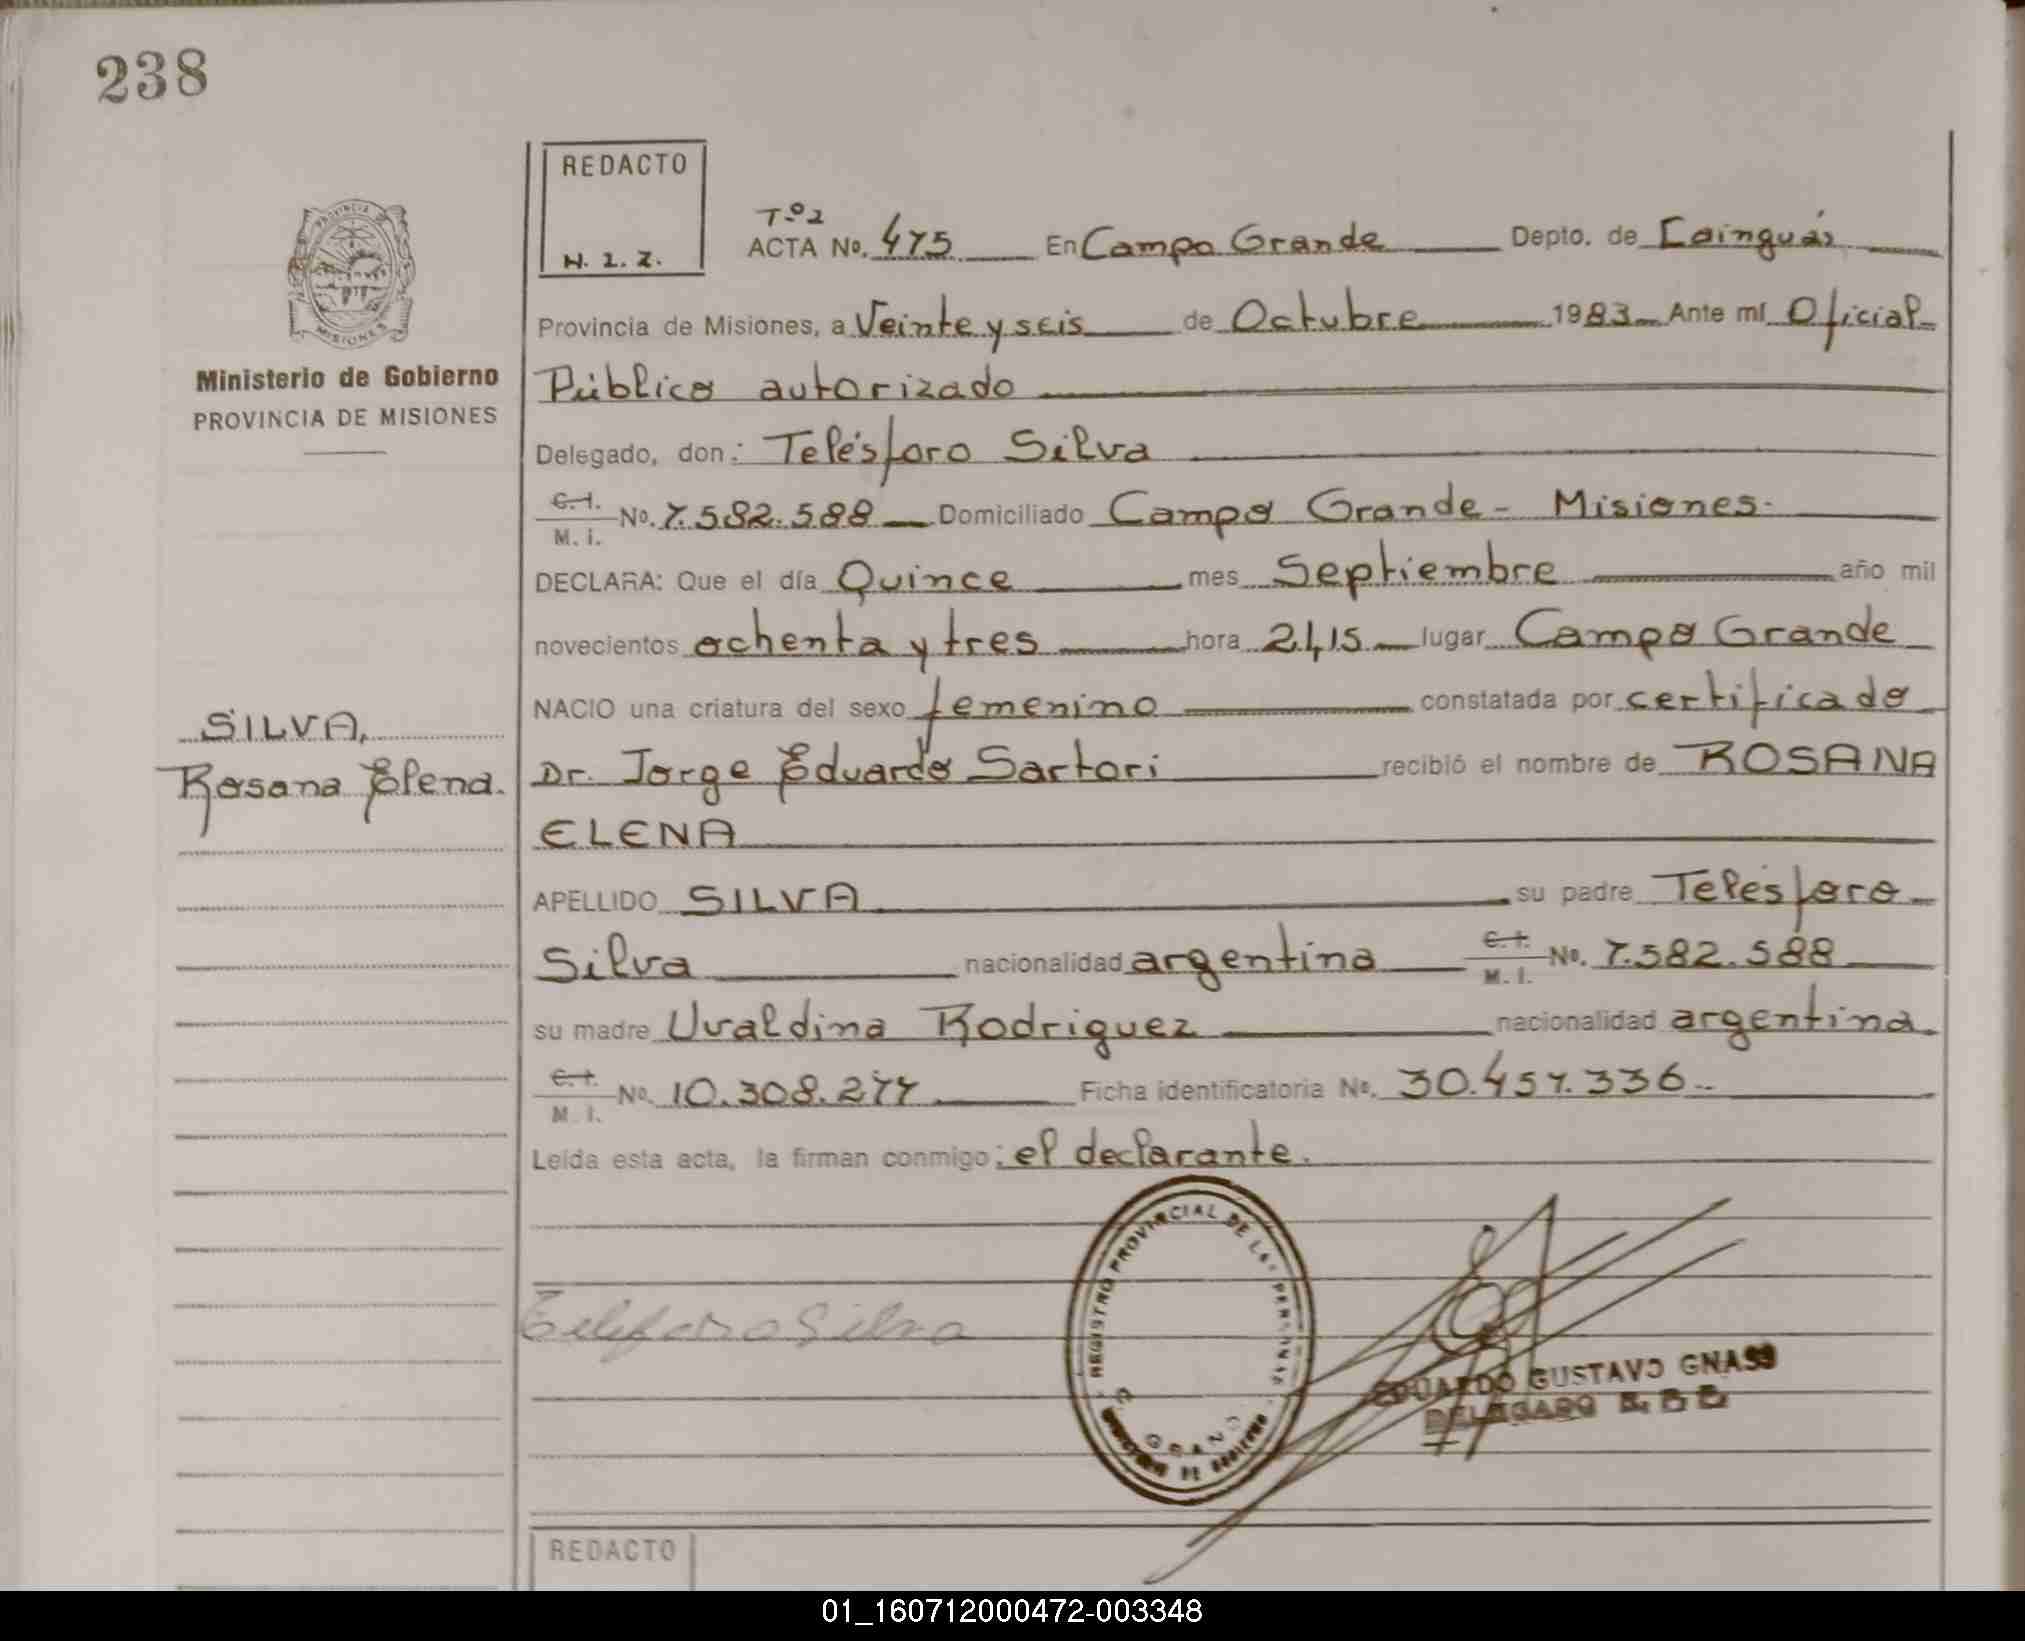 238
REDACTO
N. I. Z.
Tº2
ACTA No. 475 En Campo Grande Depto. de Cainguás
Provincia de Misiones, a Veinte y seis de Octubre 1983 Ante mí Oficial
Ministerio de Gobierno
PROVINCIA DE MISIONES
Público autorizado
Delegado, don: Telésforo Silva
C.I. M. I. No. 7.582.588 Domiciliado Campo Grande - Misiones.
DECLARA: Que el día Quince mes Septiembre año mil
novecientos ochenta y tres hora 21,15 lugar Campo Grande
NACIO una criatura del sexo femenino constatada por certificado
SILVA,
Rosana Elena.
Dr. Jorge Eduardo Sartori recibió el nombre de ROSANA
ELENA
APELLIDO SILVA su padre Telésforo
Silva nacionalidad argentina C.I. M. I. No. 7.582.588
su madre Uvaldina Rodriguez nacionalidad argentina.
C.I. M. I. No. 10.308.277 Ficha identificatoria No. 30.457.336
Leída esta acta, la firman conmigo: el declarante.
REGISTRO PROVINCIAL DE LAS PERSONAS
Telesforo Silva
EDUARDO GUSTAVO GNASS
DELEGADO
REDACTO
01_160712000472-003348